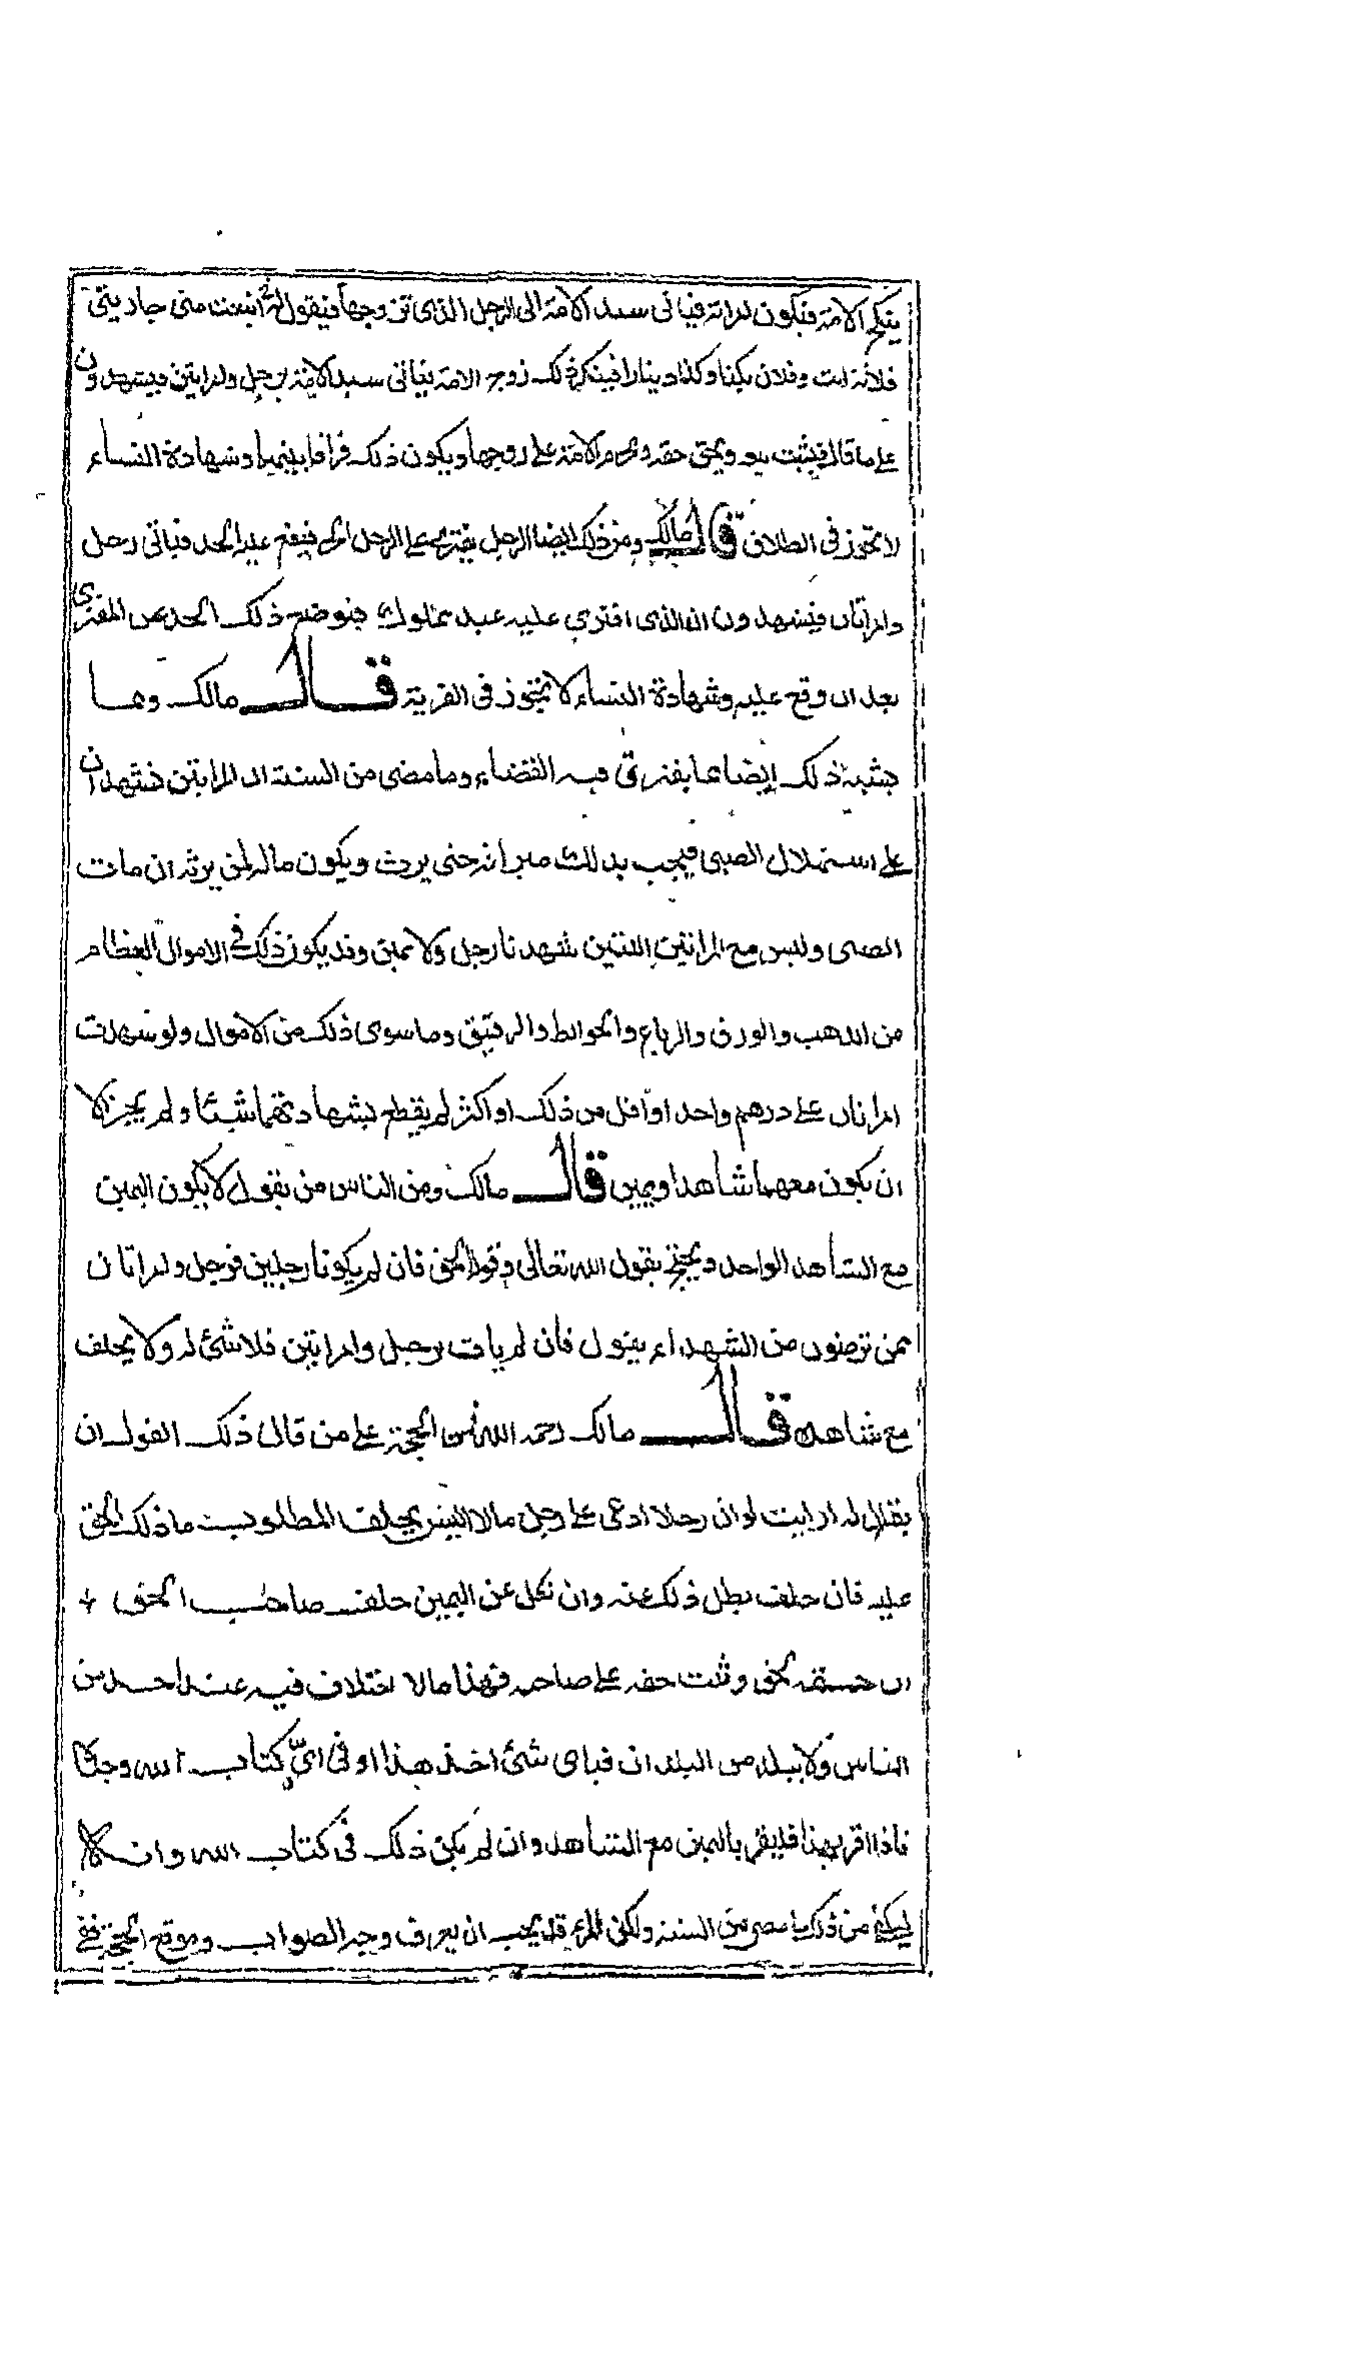 ينكح الامة فتكون امراته فياتى سيد الامة الى الرجل الذى تزوجها فيقول له ابتعت منى جاريتى
فلانة انت وفلان بكذا وكذا دينارا فينكر ذلك زوج الامة فياتى سيد الامة برجل وامراتين فيشهدون
على ما قال فيثبت بيعه ويحق حقه وتحرم الامة على زوجها ويكون ذلك فراقا بينهما وشهادة النساء
لا تجوز فى الطلاق قال مالك ومن ذلك ايضا الرجل يفترى على الرجل الحر فيقع عليه الحد فياتى رجل
وامراتان فيشهدون ان الذى افترى عليه عبد مملوك فيوضع ذلك الحد عن المفترى
بعد ان وقع عليه وشهادة النساء لا تجوز فى الفرية قال مالك ومما
يشبه ذلك ايضا مما يفترق فيه القضاء وما مضى من السنة ان المراتين تشهدان
على استهلال الصبى فيجب بذلك ميراثه حتى يرث ويكون ماله لمن يرثه ان مات
الصبى وليس مع المراتين اللتين شهدتا رجل ولا يمين وقد يكون ذلك فى الاموال العظام
من الذهب والورق والرباع والحوائط والرقيق وما سوى ذلك من الاموال ولو شهدت
امراتان على درهم واحد او اقل من ذلك او اكثر لم يقطع بشهادتهما شيئا ولم يجز الا
ان يكون معهما شاهد او يمين قال مالك ومن الناس من يقول لا يكون اليمين
مع الشاهد الواحد ويحتج بقول الله تعالى وقوله الحق فان لم يكونا رجلين فرجل وامراتان
ممن ترضون من الشهداء يقول فان لم يات برجل وامراتين فلا شئ له ولا يحلف
مع شاهده قال مالك رحمه الله فمن الحجة على من قال ذلك القول ان
يقال له ارايت لو ان رجلا ادعى على رجل مالا اليس يحلف المطلوب ما ذلك الحق
عليه فان حلف بطل ذلك عنه وان نكل عن اليمين حلف صاحب الحق
ان حقه لحق وثبت حقه على صاحبه فهذا مالا اختلاف فيه عند احد من
الناس ولا ببلد من البلدان فباى شئ اخذ هذا او فى اىّ كتاب الله وجده
فاذا اقر بهذا فليقر باليمين مع الشاهد وان لم يكن ذلك فى كتاب الله وان كان
ليكفى من ذلك ما مضى من السنة ولكن المرء قد يحب ان يعرف وجه الصواب وموقع الحجة ففى